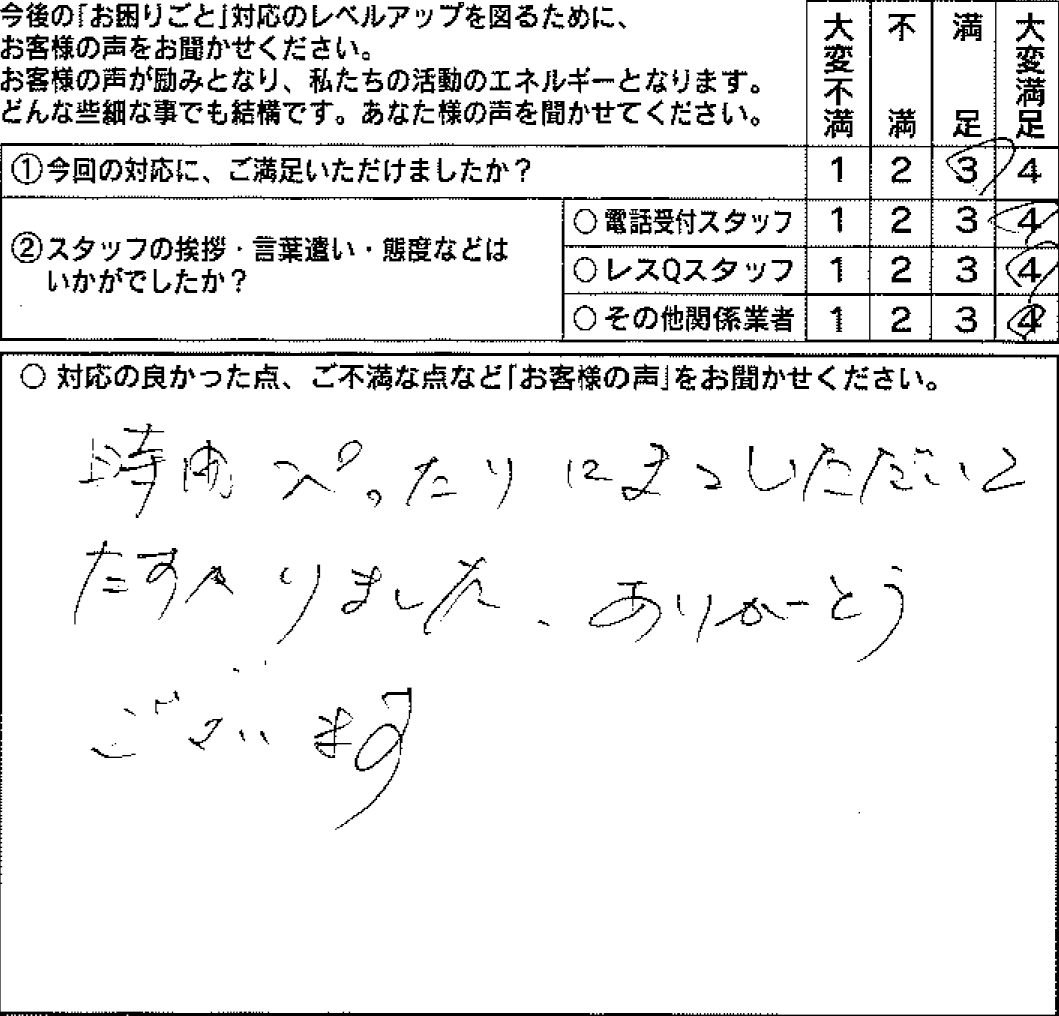 今後の「お困りごと」対応のレベルアップを図るために、
お客様の声をお聞かせください。
お客様の声が励みとなり、私たちの活動のエネルギーとなります。
どんな些細な事でも結構です。あなた様の声を聞かせてください。
大変不満 不満 満足 大変満足
①今回の対応に、ご満足いただけましたか？ 1 2 3 4
②スタッフの挨拶・言葉遣い・態度などは
いかがでしたか？
○電話受付スタッフ 1 2 3 4
○レスQスタッフ 1 2 3 4
○その他関係業者 1 2 3 4
○ 対応の良かった点、ご不満な点など「お客様の声」をお聞かせください。
時間ぴったりに
たすかりました、ありがとう
ございます